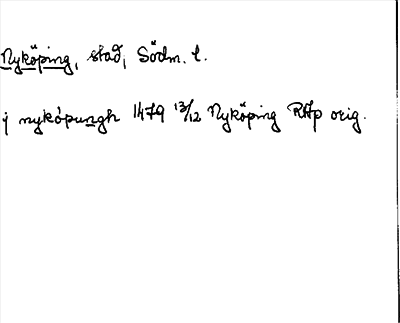 Nyköping, stad, Södm. l.
j nyköpungh 1479 13/12 Nyköping RAp orig.